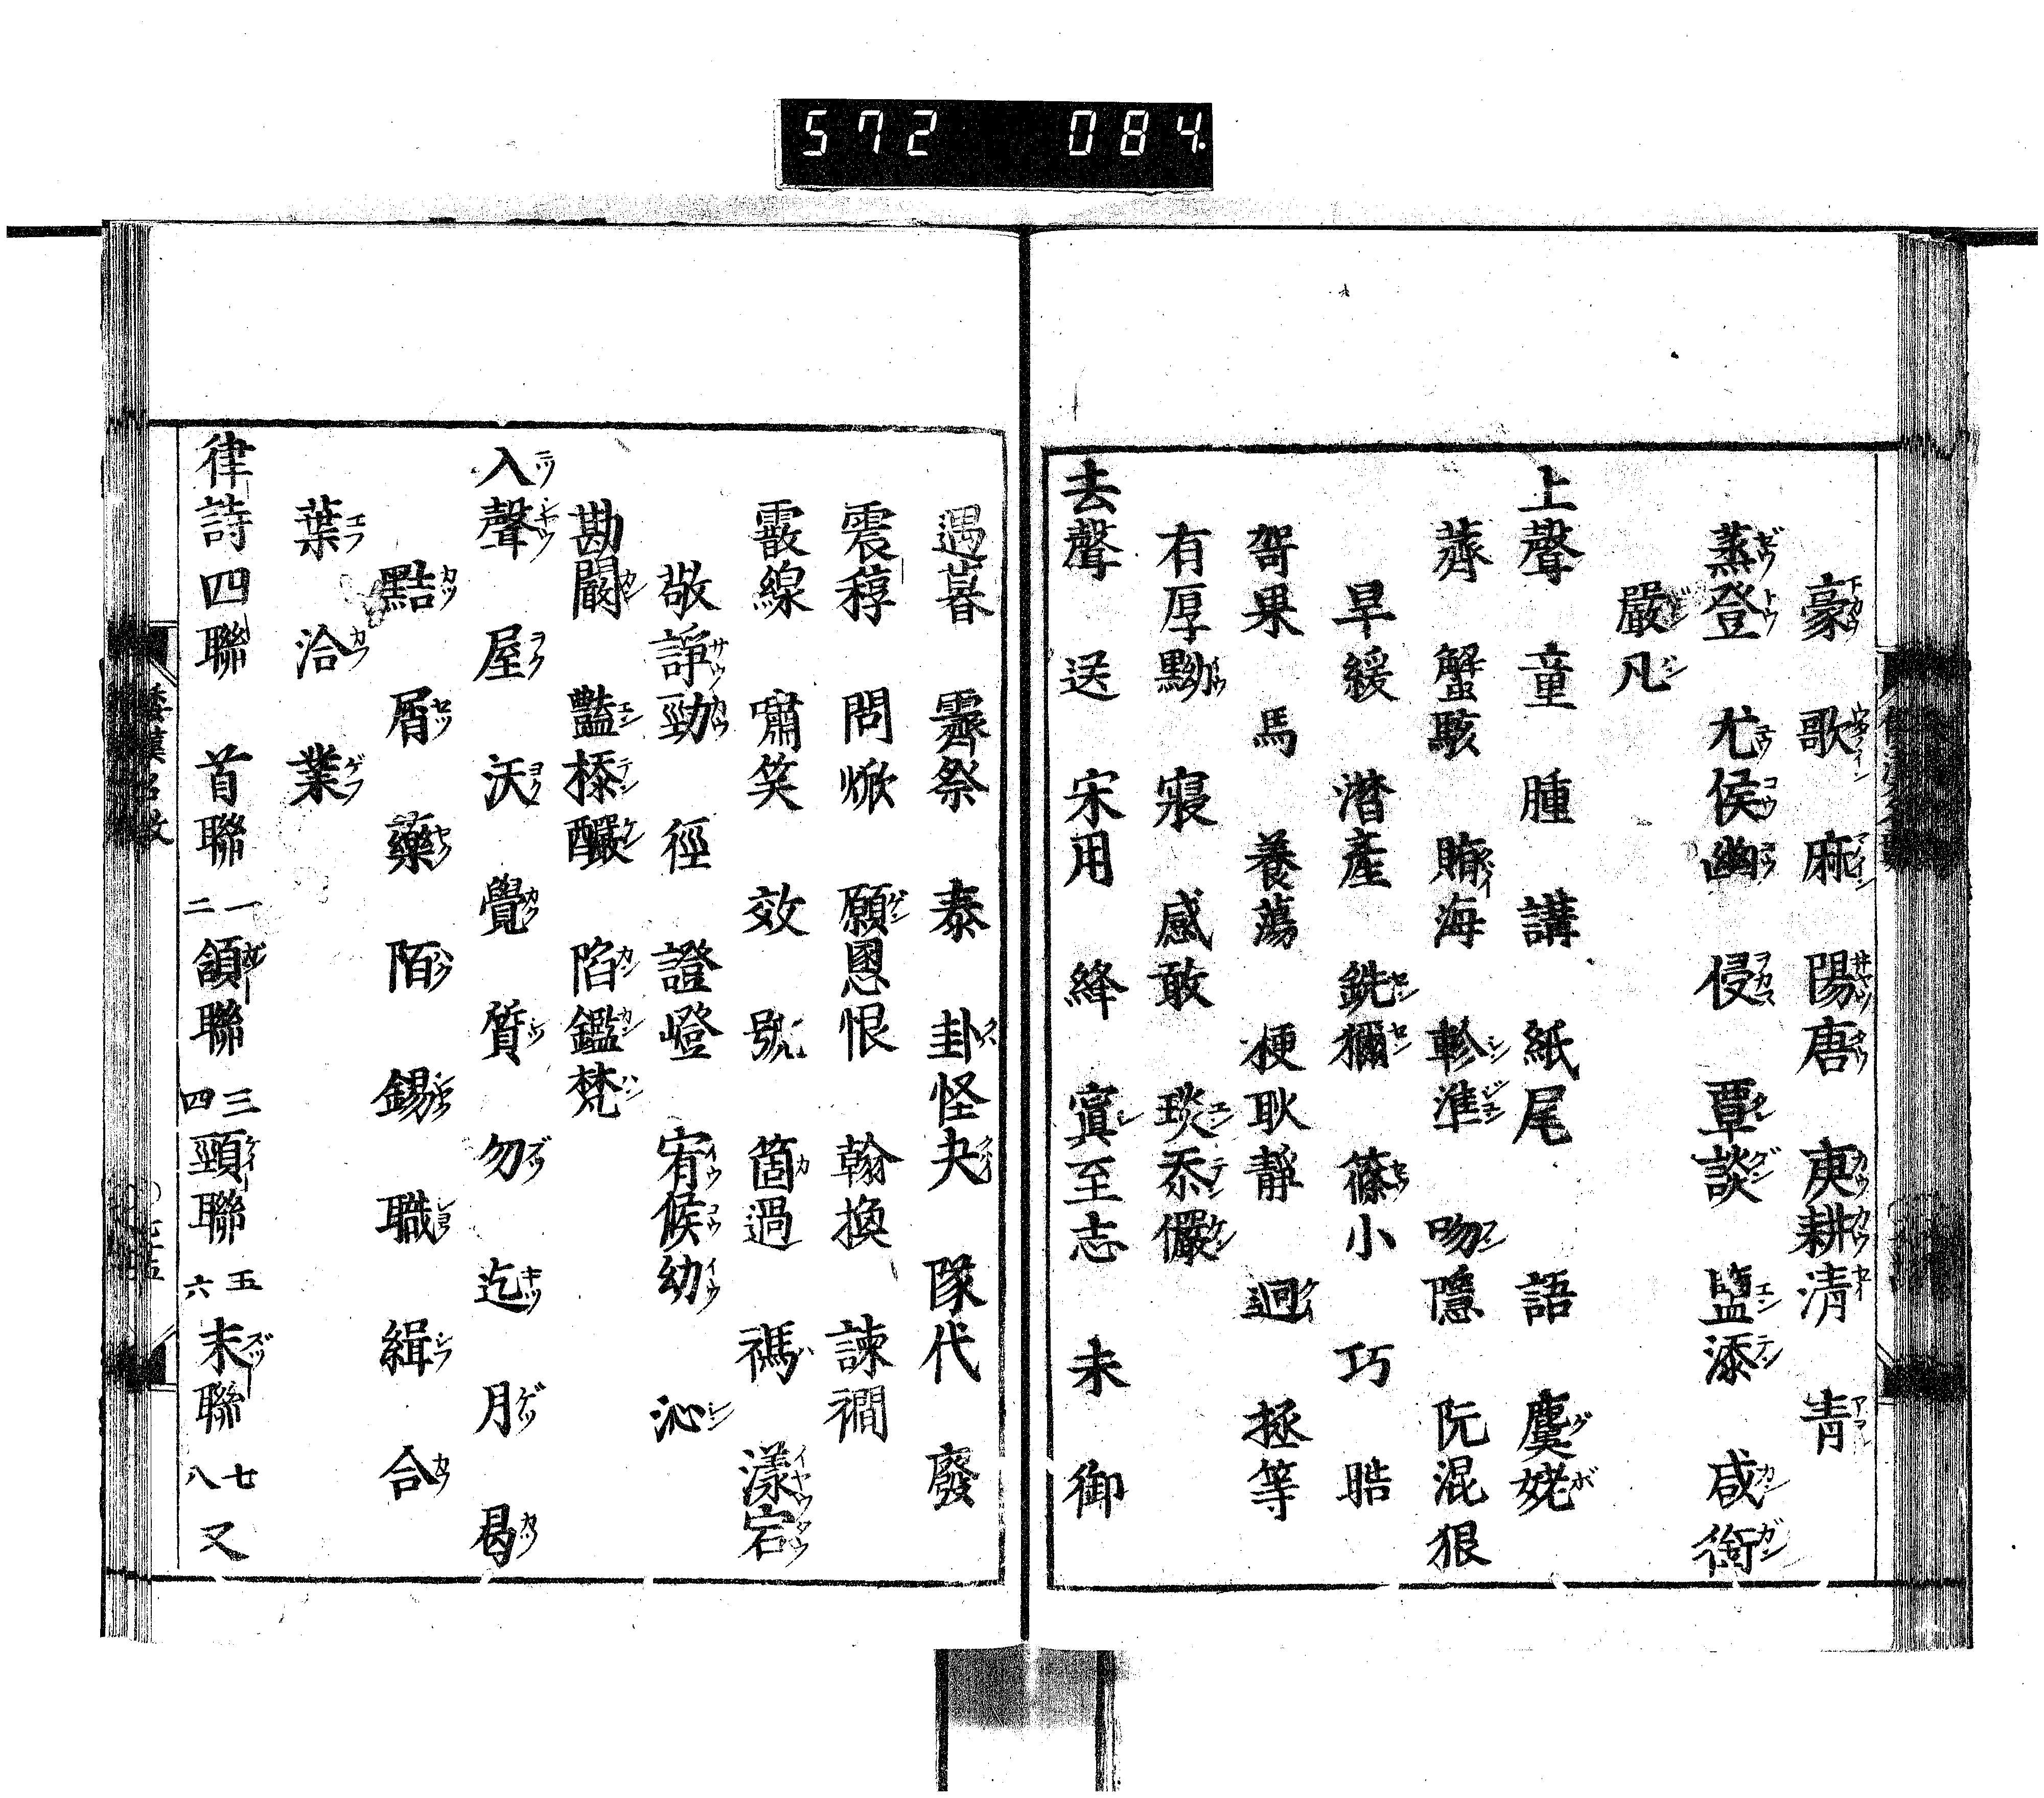 572 084
豪 歌 麻 陽唐 庚耕清 青
蒸登 尤侯幽 侵 覃談 盬添 咸銜
嚴凡
上聲 童 腫 講 紙尾 語 麌姥
薺 蟹駭 賄海 軫準 吻隱 阮混狠
早緩 潸產 銑獮 篠小 巧 晧
哿果 馬 養蕩 梗耿靜 迥 拯等
有厚黝 寑 感敢 琰忝儼
去聲 送 宋用 絳 寘至志 未 御
遇暮 霽祭 泰 卦怪夬 隊代 廢
震稕 問焮 願慁恨 翰換 諫襇
霰線 嘯笑 效 號 箇過 禡 漾宕
敬諍勁 徑 證嶝 宥候幼 沁
勘闞 豔㮇釅 陷鑑梵
入聲 屋 沃 覺 質 勿 迄 月 曷
黠 屑 藥 陌 錫 職 緝 合
葉 洽 業
律詩四聯 首聯一二頷聯三四頸聯五六末聯七八又